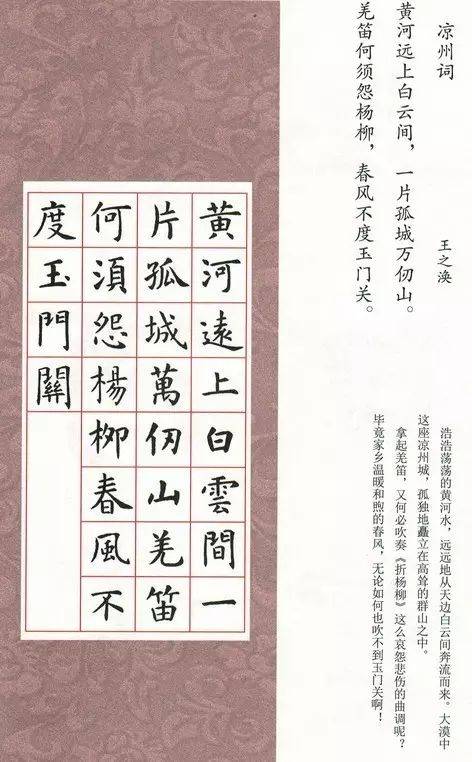 凉州词
王之涣
黄河远上白云间，一片孤城万仞山。
羌笛何须怨杨柳，春风不度玉门关。
浩浩荡荡的黄河水，远远地从天边白云间奔流而来。大漠中
这座凉州城，孤独地矗立在高耸的群山之中。
拿起羌笛，又何必吹奏《折杨柳》这么哀怨悲伤的曲调呢？
毕竟家乡温暖和煦的春风，无论如何也吹不到玉门关啊！
黃河遠上白雲間一
片孤城萬仞山羌笛
何須怨楊柳春風不
度玉門關